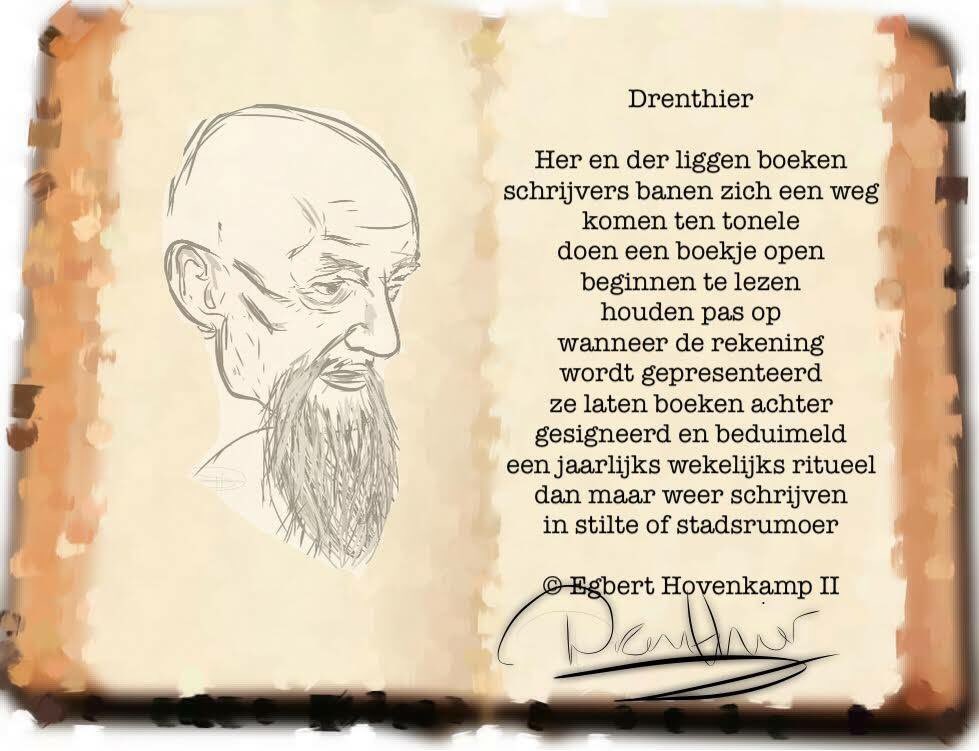 Drenthier
Her en der liggen boeken
schrijvers banen zich een weg
komen ten tonele
doen een boekje open
beginnen te lezen
houden pas op
wanneer de rekening
wordt gepresenteerd
ze laten boeken achter
gesigneerd en beduimeld
een jaarlijks wekelijks ritueel
dan maar weer schrijven
in stilte of stadsrumoer
© Egbert Hovenkamp II
Drenthier